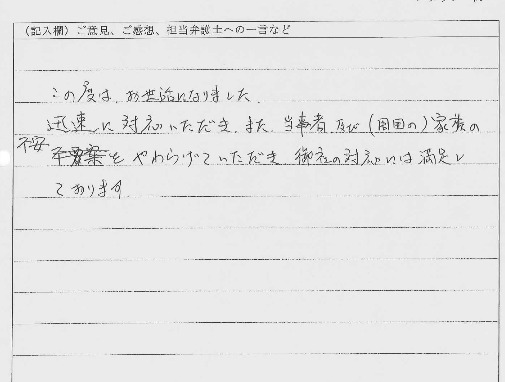 (記入欄)ご意見、ご感想、担当弁護士への一言など
この度は、お世話になりました。
迅速に対応いただき、また、当事者及び(周囲の)家族の
不安をやわらげていただき、御社の対応には満足し
ております。